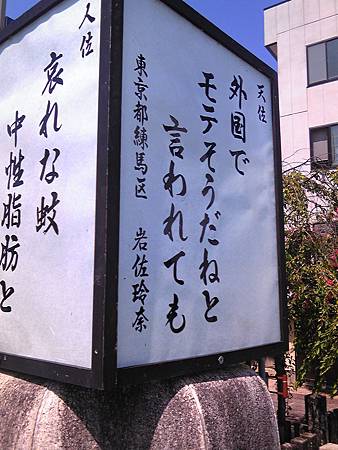 天位
外国で
モテそうだねと
言われても
東京都練馬区 岩佐玲奈
人位
哀れな蚊
中性脂肪と